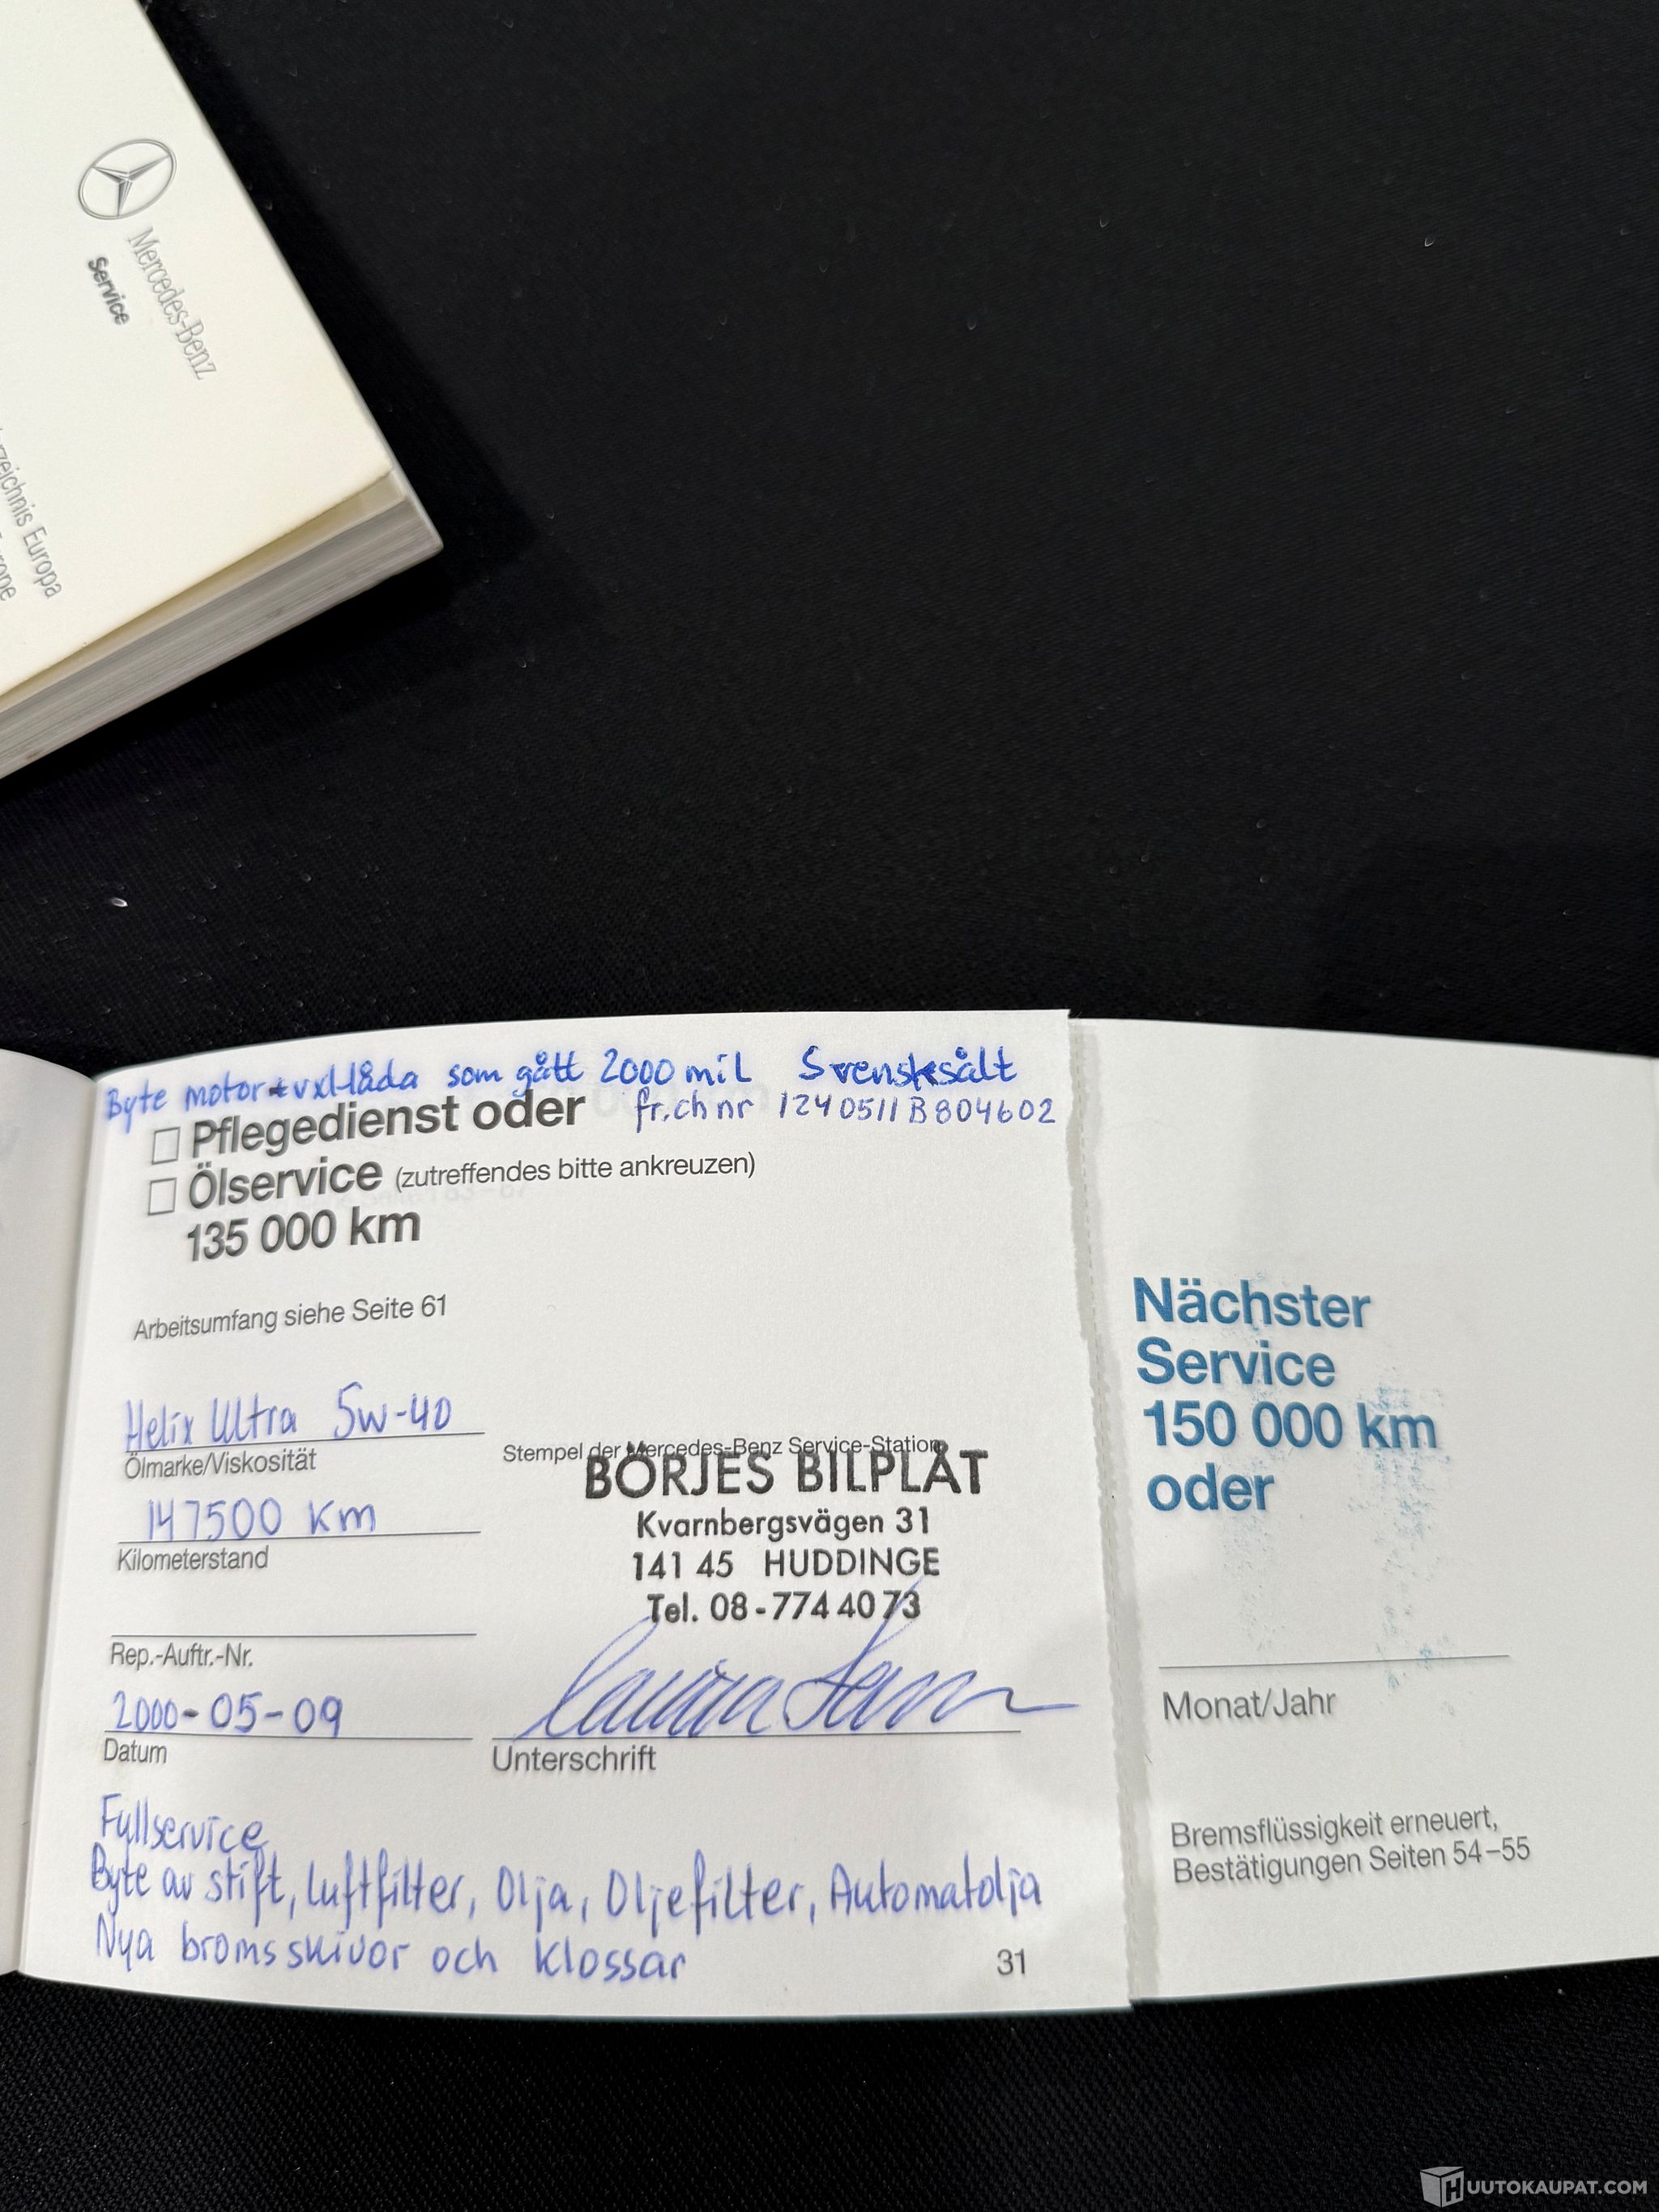 Mercedes-Benz
Service
rzeichnis Europa
Byte motor + vxl-låda som gått 2000 mil Svensksålt
fr.ch nr 1240511B804602
Pflegedienst oder
Ölservice (zutreffendes bitte ankreuzen)
135 000 km
Arbeitsumfang siehe Seite 61
Helix Ultra 5w-40
Ölmarke/Viskosität
147500 Km
Kilometerstand
Rep.-Auftr.-Nr.
2000-05-09
Datum
Stempel der Mercedes-Benz Service-Station
BÖRJES BILPLÅT
Kvarnbergsvägen 31
141 45 HUDDINGE
Tel. 08-774 40 73
Unterschrift
Fullservice
Byte av stift, luftfilter, Olja, Oljefilter, Automatolja
Nya bromsskivor och klossar
31
Nächster
Service
150 000 km
oder
Monat/Jahr
Bremsflüssigkeit erneuert,
Bestätigungen Seiten 54–55
HUUTOKAUPAT.COM